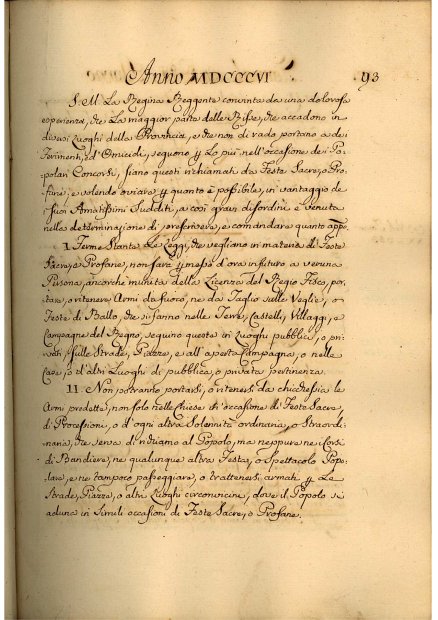 Anno MDCCCVI
93
S. M. La Regina Reggente convinta da una dolorosa
esperienza, che La maggior parte delle Risse, che accadono in
diversi Luoghi della Provincia, e che non di rado portano a dei
Ferimenti, ed Omicidi, seguono p Lo più nell'occasione dei Po-
polari Concorsi, siano questi richiamati da Feste Sacre, o Pro-
fane: e volendo ovviare p quanto è possibile, in vantaggio de
suoi Amatissimi Sudditi, a così gran disordini è venuta
nella determinazione di prescrivere, e comandare quanto appo
I. Ferme Stanti Le Leggi, che vegliano in materia di Feste
Sacre, o Profane, non sarà permesso d'ora in futuro a veruna
Persona, ancorchè munita della Licenza del Regio Fisco, por-
tare, o ritenere Armi da fuoco, ne da Taglio sulle Veglie, o
Feste di Ballo, che si fanno nelle Terre, Castelli, Villaggi, e
Campagne del Regno, seguino queste in Luoghi pubblici, o pri-
vati sulle Strade, Piazze, e all'aperta Campagna, o nelle
Case, o d'altri Luoghi di pubblica, o privata pertinenza.
II. Non potranno portarsi, o ritenersi da chicchessia Le
Armi predette, non solo nelle Chiese in occasione di Feste Sacre,
di Processioni, o d'ogni altra Solennità ordinaria, o Straordi-
naria, che serva di richiamo al Popolo, ma neppure ne Corsi
di Bandiere, ne qualunque altra Festa, o Spettacolo Popo-
lare, e ne tampoco passeggiare, o trattenersi armati p Le
Strade, Piazze, o altri Luoghi circonvicini, dove il Popolo si
aduna in Simili occasioni di Feste Sacre, o Profane.